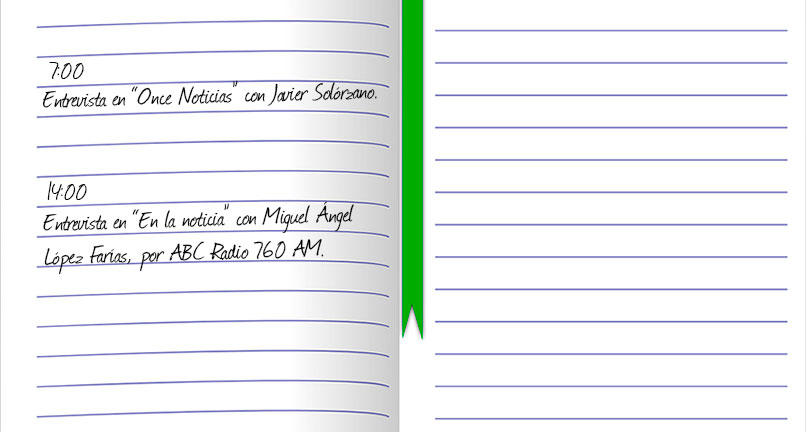 7:00
Entrevista en "Once Noticias" con Javier Solórzano.
14:00
Entrevista en "En la noticia" con Miguel Ángel
López Farías, por ABC Radio 760 AM.